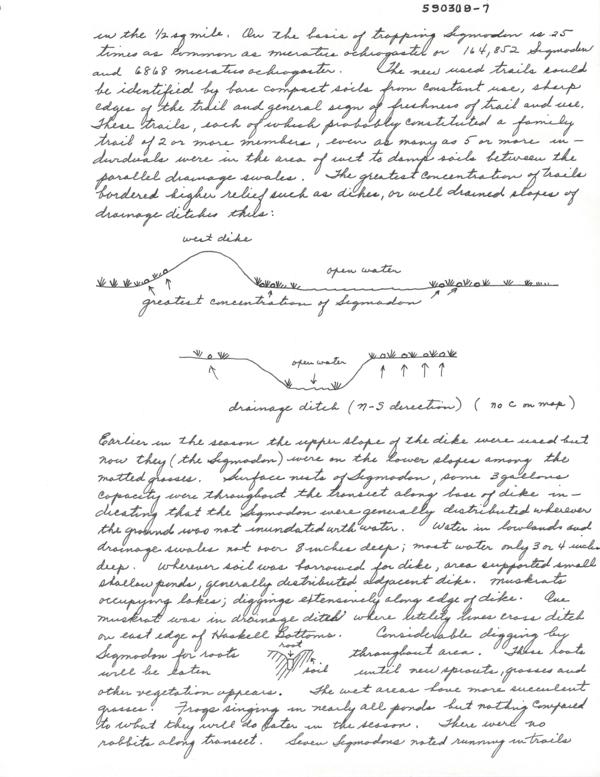 590308-7
in the 1/2 sq mile. On the basis of trapping Sigmodon is 25
times as common as microtus ochrogaster or 164,852 Sigmodon
and 6868 microtus ochrogaster. The new used trails could
be identified by bare compact soils from constant use, sharp
edges of the trail and general sign of freshness of trail and use.
These trails, each of which probably constituted a family
trail of 2 or more members, even as many as 5 or more in-
dividuals were in the area of wet to damp soils between the
parallel drainage swales. The greatest concentration of trails
bordered higher relief such as dikes, or well drained slopes of
drainage ditches thus:
west dike
open water
greatest concentration of Sigmodon
open water
drainage ditch (N-S direction) (no C on map)
Earlier in the season the upper slope of the dike were used but
now they (the Sigmodon) were on the lower slopes among the
matted grasses. Surface nests of Sigmodon, some 3 gallons
capacity were throughout the transect along base of dike in-
dicating that the Sigmodon were generally distributed wherever
the ground was not inundated with water. Water in lowlands and
drainage swales not over 8 inches deep; most water only 3 or 4 inches
deep. Wherever soil was borrowed for dike, area supported small
shallow ponds, generally distributed adjacent dike. Muskrats
occupying lakes; diggings extensively along edge of dike. One
muskrat was in drainage ditch where utility lines cross ditch
on east edge of Haskell Bottoms. Considerable digging by
Sigmodon for roots root soil throughout area. These roots
will be eaten until new sprouts, grasses and
other vegetation appears. The wet areas have more succulent
grasses. Frogs singing in nearly all ponds but nothing compared
to what they will do later in the season. There were no
rabbits along transect. Seven Sigmodons noted running in trails